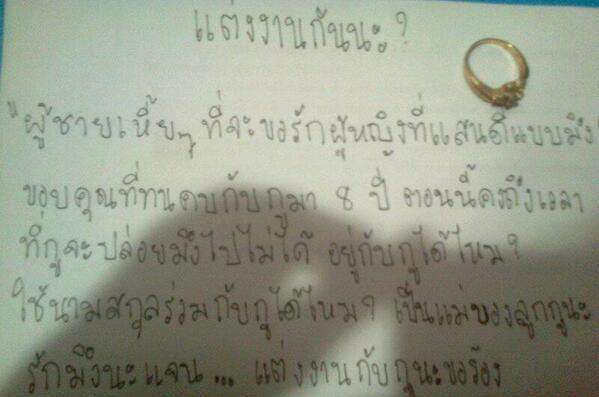 แต่งงานกันนะ?
"ผู้ชายเหี้ยๆ ที่จะขอรักผู้หญิงที่แสนดีแบบมึง"
ขอบคุณที่ทนคบกับกูมา 8 ปี ตอนนี้คงถึงเวลา
ที่กูจะปล่อยมึงไปไม่ได้ อยู่กับกูได้ไหม?
ใช้นามสกุลร่วมกับกูได้ไหม? เป็นแม่ของลูกกูนะ
รักมึงนะแจน... แต่งงานกับกูนะขอร้อง